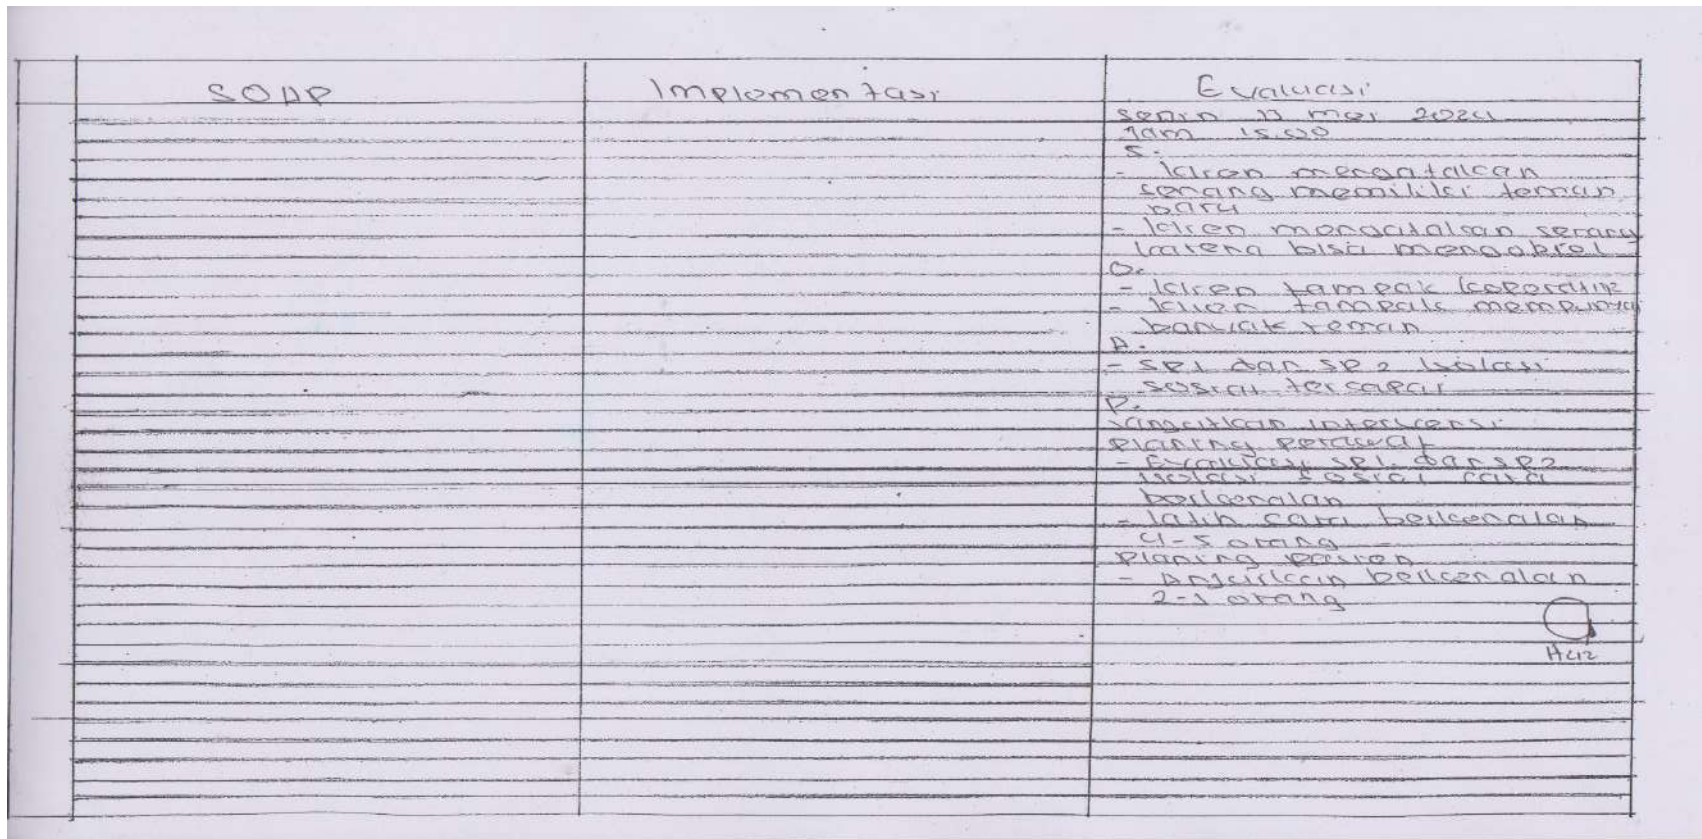 SOAP
Implementasi
Evaluasi
senin 13 mei 2024
Jam 15.00
S:
- klien mengatakan
senang memiliki teman
baru
- klien mengatakan senang
karena bisa mengobrol
O:
- klien tampak koperatif
- klien tampak mempunyai
banyak teman
A:
- SP1 dan SP2 isolasi
sosial tercapai
P:
Lanjutkan intervensi
Planing perawat
- Evaluasi SP1 dan SP2
isolasi sosial cara
berkenalan
- latih cara berkenalan
4-5 orang
Planing pasien
- Anjurkan berkenalan
2-3 orang